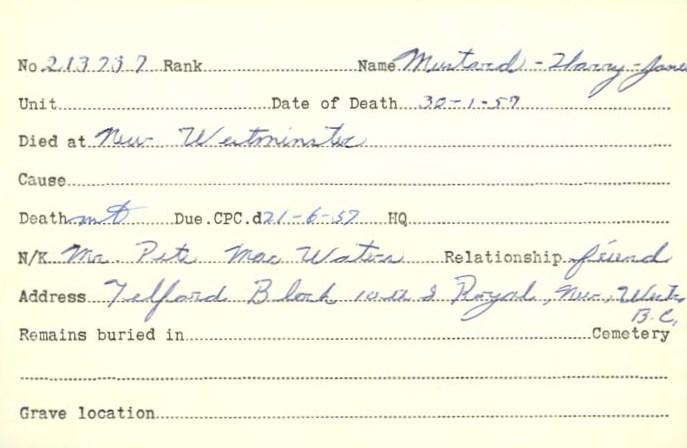 No 213737 Rank Name Mustard - Harry - James
Unit Date of Death 30-1-57
Died at New Westminster
Cause
Death Due.CPC.d 21-6-57 HQ
N/K Mr. Pete Mac Waters Relationship friend
Address Telford Block Royal, New, West,
B.C.
Remains buried in Cemetery
Grave location